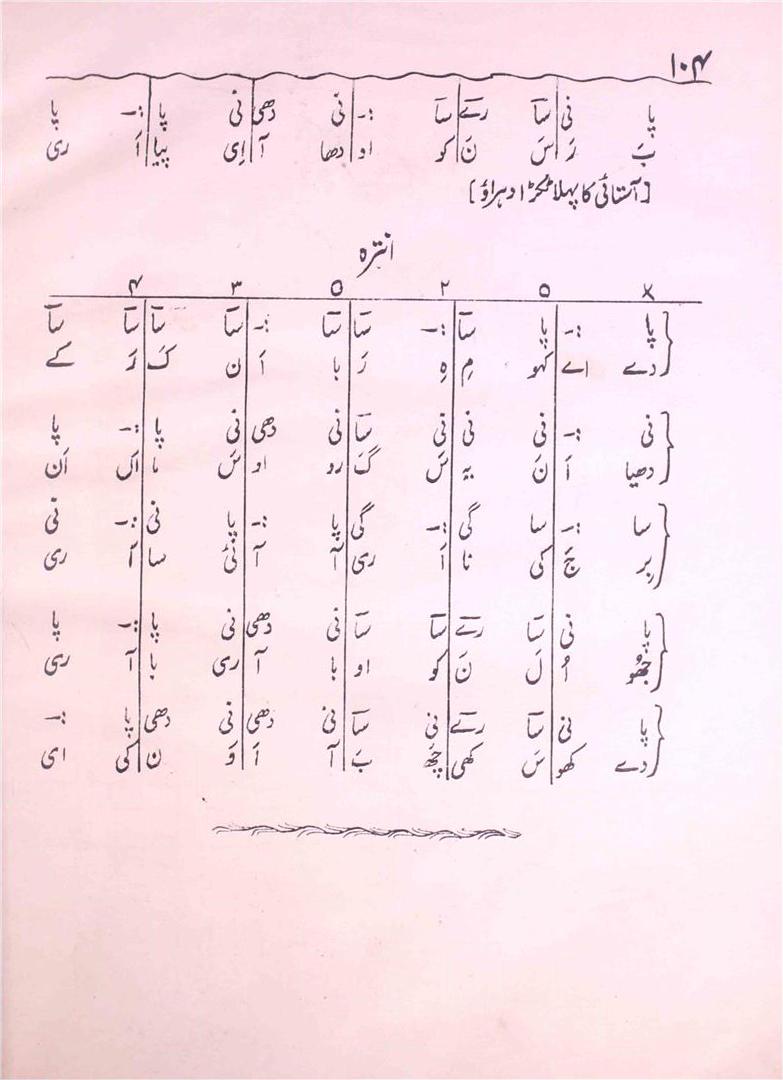 ۱۰۴
پا نی سآ رے سآ :- نی دھی نی پا :- پا
بَ رَ سَ نَ کو او دھا آ اِی پیا اَ ری
[آستائی کا پہلا ٹکڑا دہراؤ]
انترہ
x ٥ ٢ ٥ ٣ ۴
پا :- پا سآ :- سآ سآ :- سآ سآ سآ سآ
دے اے کھو مِ ہِ رَ با اَ ن کَ رَ کے
نی :- نی نی نی سآ نی دھی نی پا :- پا
دھیا اَ نَ یہ سَ گَ رو او سَ نا اَں اَن
سا :- سا گی :- گی پا :- پا نی :- نی
بِر جَ کی نا اَ ری آ آ ئی سا آ ری
پا نی سآ رے سآ سآ نی دھی نی پا :- پا
جھُو اُ لَ نَ کو او با آ ری با آ ری
پا نی سآ رے نی سآ نی دھی نی دھی پا :-
دے کھو سَ کھی چھَ بَ آ اَ وَ ن کی ای